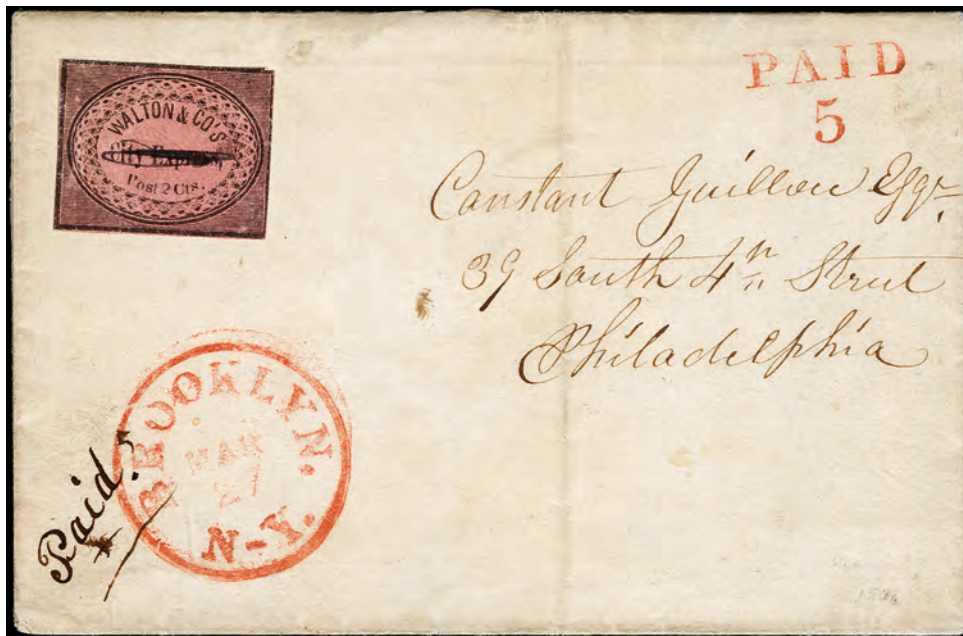 WALTON & CO'S
City Express
Post 2 Cts.
PAID
5
Constant Guillou Esqr
39 South 4th Street
Philadelphia
BROOKLYN.
MAR
27
N-Y.
Paid.